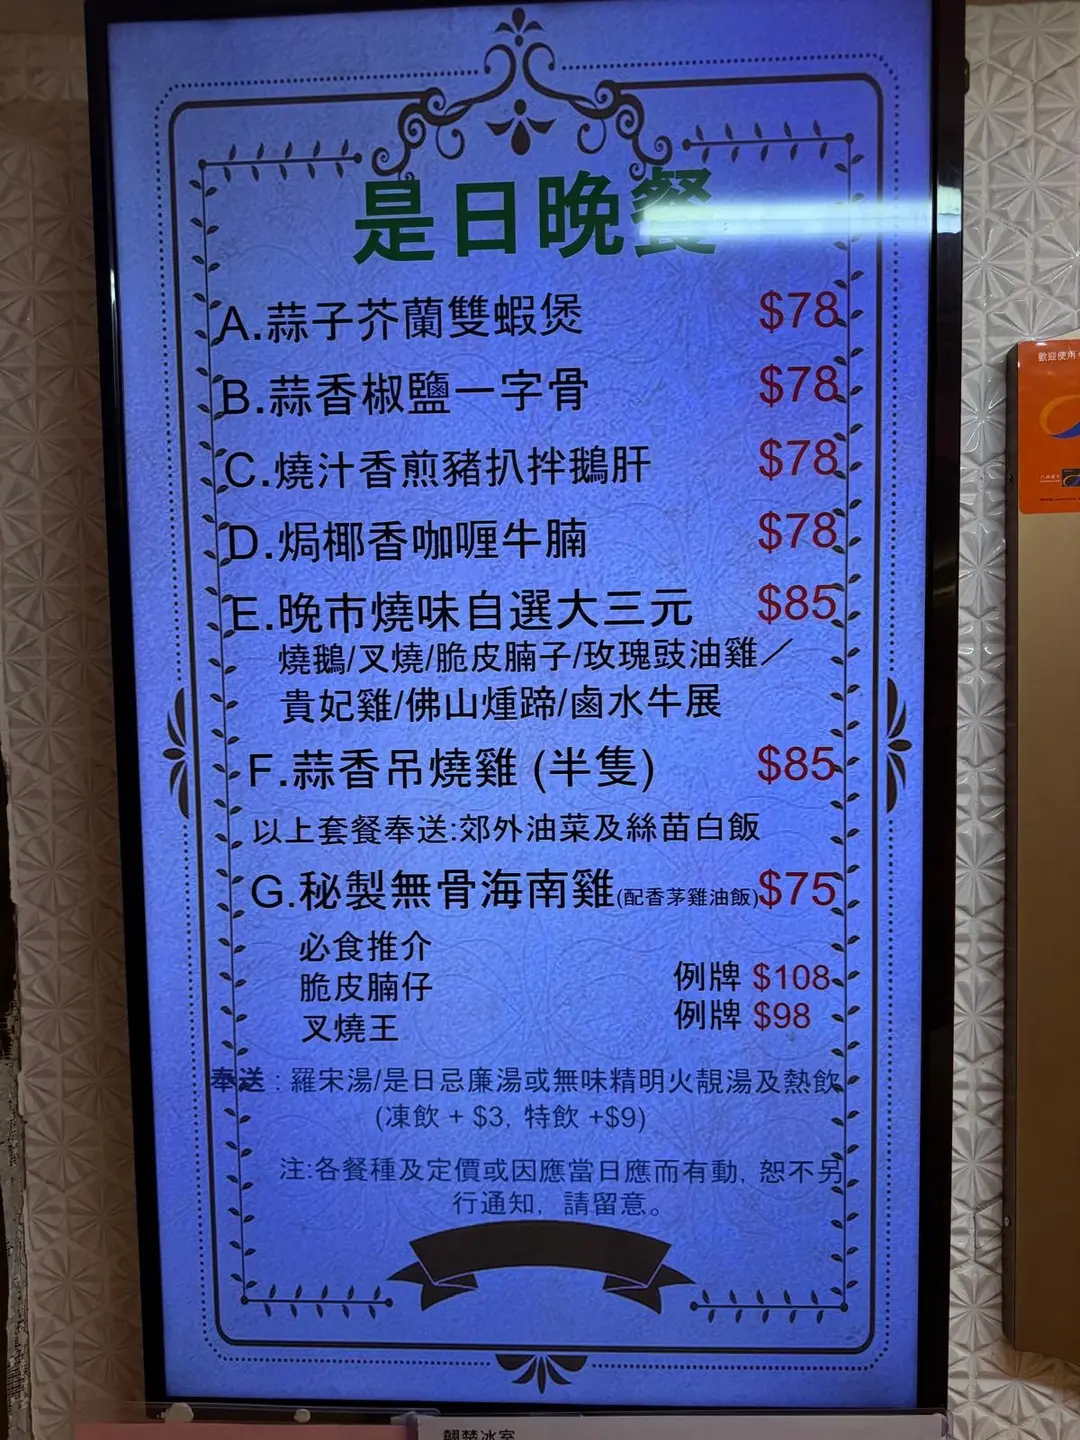 是日晚餐
A.蒜子芥蘭雙蝦煲 $78
B.蒜香椒鹽一字骨 $78
C.燒汁香煎豬扒拌鵝肝 $78
D.焗椰香咖喱牛腩 $78
E.晚市燒味自選大三元 $85
燒鵝/叉燒/脆皮腩子/玫瑰豉油雞／
貴妃雞/佛山燻蹄/鹵水牛展
F.蒜香吊燒雞 (半隻) $85
以上套餐奉送:郊外油菜及絲苗白飯
G.秘製無骨海南雞(配香茅雞油飯) $75
必食推介
脆皮腩仔 例牌 $108
叉燒王 例牌 $98
奉送 : 羅宋湯/是日忌廉湯或無味精明火靚湯及熱飲
(凍飲 + $3, 特飲 +$9)
注:各餐種及定價或因應當日應而有動, 恕不另
行通知, 請留意。
歡迎使用